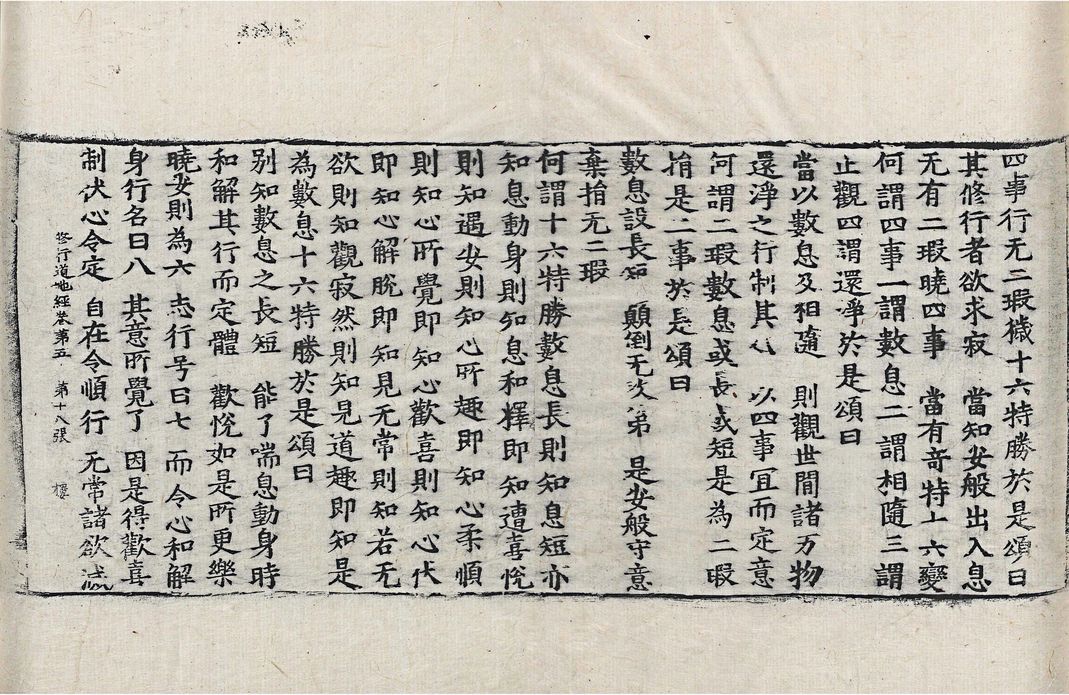 四事行无二瑕穢十六特勝於是頌曰
其修行者欲求寂　當知安般出入息
无有二瑕曉四事　當有奇特十六變
何謂四事一謂數息二謂相隨三謂
止觀四謂還淨於是頌曰
當以數息及相隨　則觀世間諸万物
還淨之行制其心　以四事宜而定意
何謂二瑕數息或長或短是為二瑕
捐是二事於是頌曰
數息設長短　顛倒无次第　是安般守意
棄捐无二瑕
何謂十六特勝數息長則知息短亦
知息動身則知息和釋即知遭喜悅
則知遇安則知心所趣即知心柔順
則知心所覺即知心歡喜則知心伏
即知心解脫即知見无常則知若无
欲則知觀寂然則知見道趣即知是
為數息十六特勝於是頌曰
別知數息之長短　能了喘息動身時
和解其行而定體　歡悅如是所更樂
曉安則為六　志行号曰七　而令心和解
身行名曰八　其意所覺了　因是得歡喜
制伏心令定　自在令順行　无常諸欲滅
修行道地經卷第五　第十八張　樓